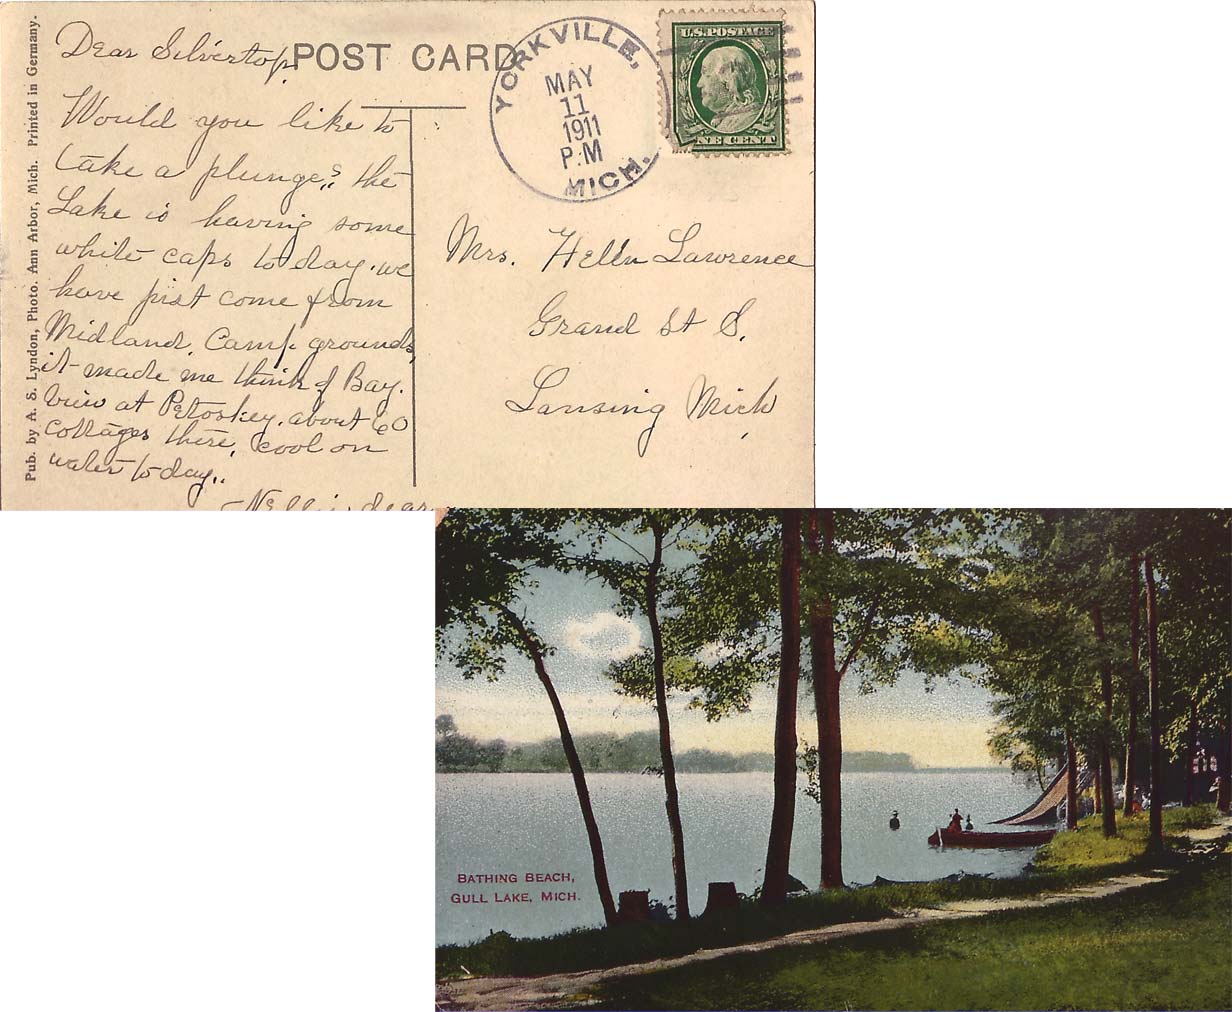 Pub. by A. S. Lyndon, Photo. Ann Arbor, Mich. Printed in Germany.
POST CARD
YORKVILLE,
MAY
11
1911
P.M
MICH.
U.S. POSTAGE
NE CENT
Dear Silvertop,
Would you like to
take a plunge? the
Lake is having some
white caps to day. we
have just come from
Midland Camp grounds,
it made me think of Bay.
View at Petoskey. about 60
cottages there, cool on
water to day..
Mrs. Hellen Lawrence
Grand St S.
Lansing Mich
BATHING BEACH,
GULL LAKE, MICH.